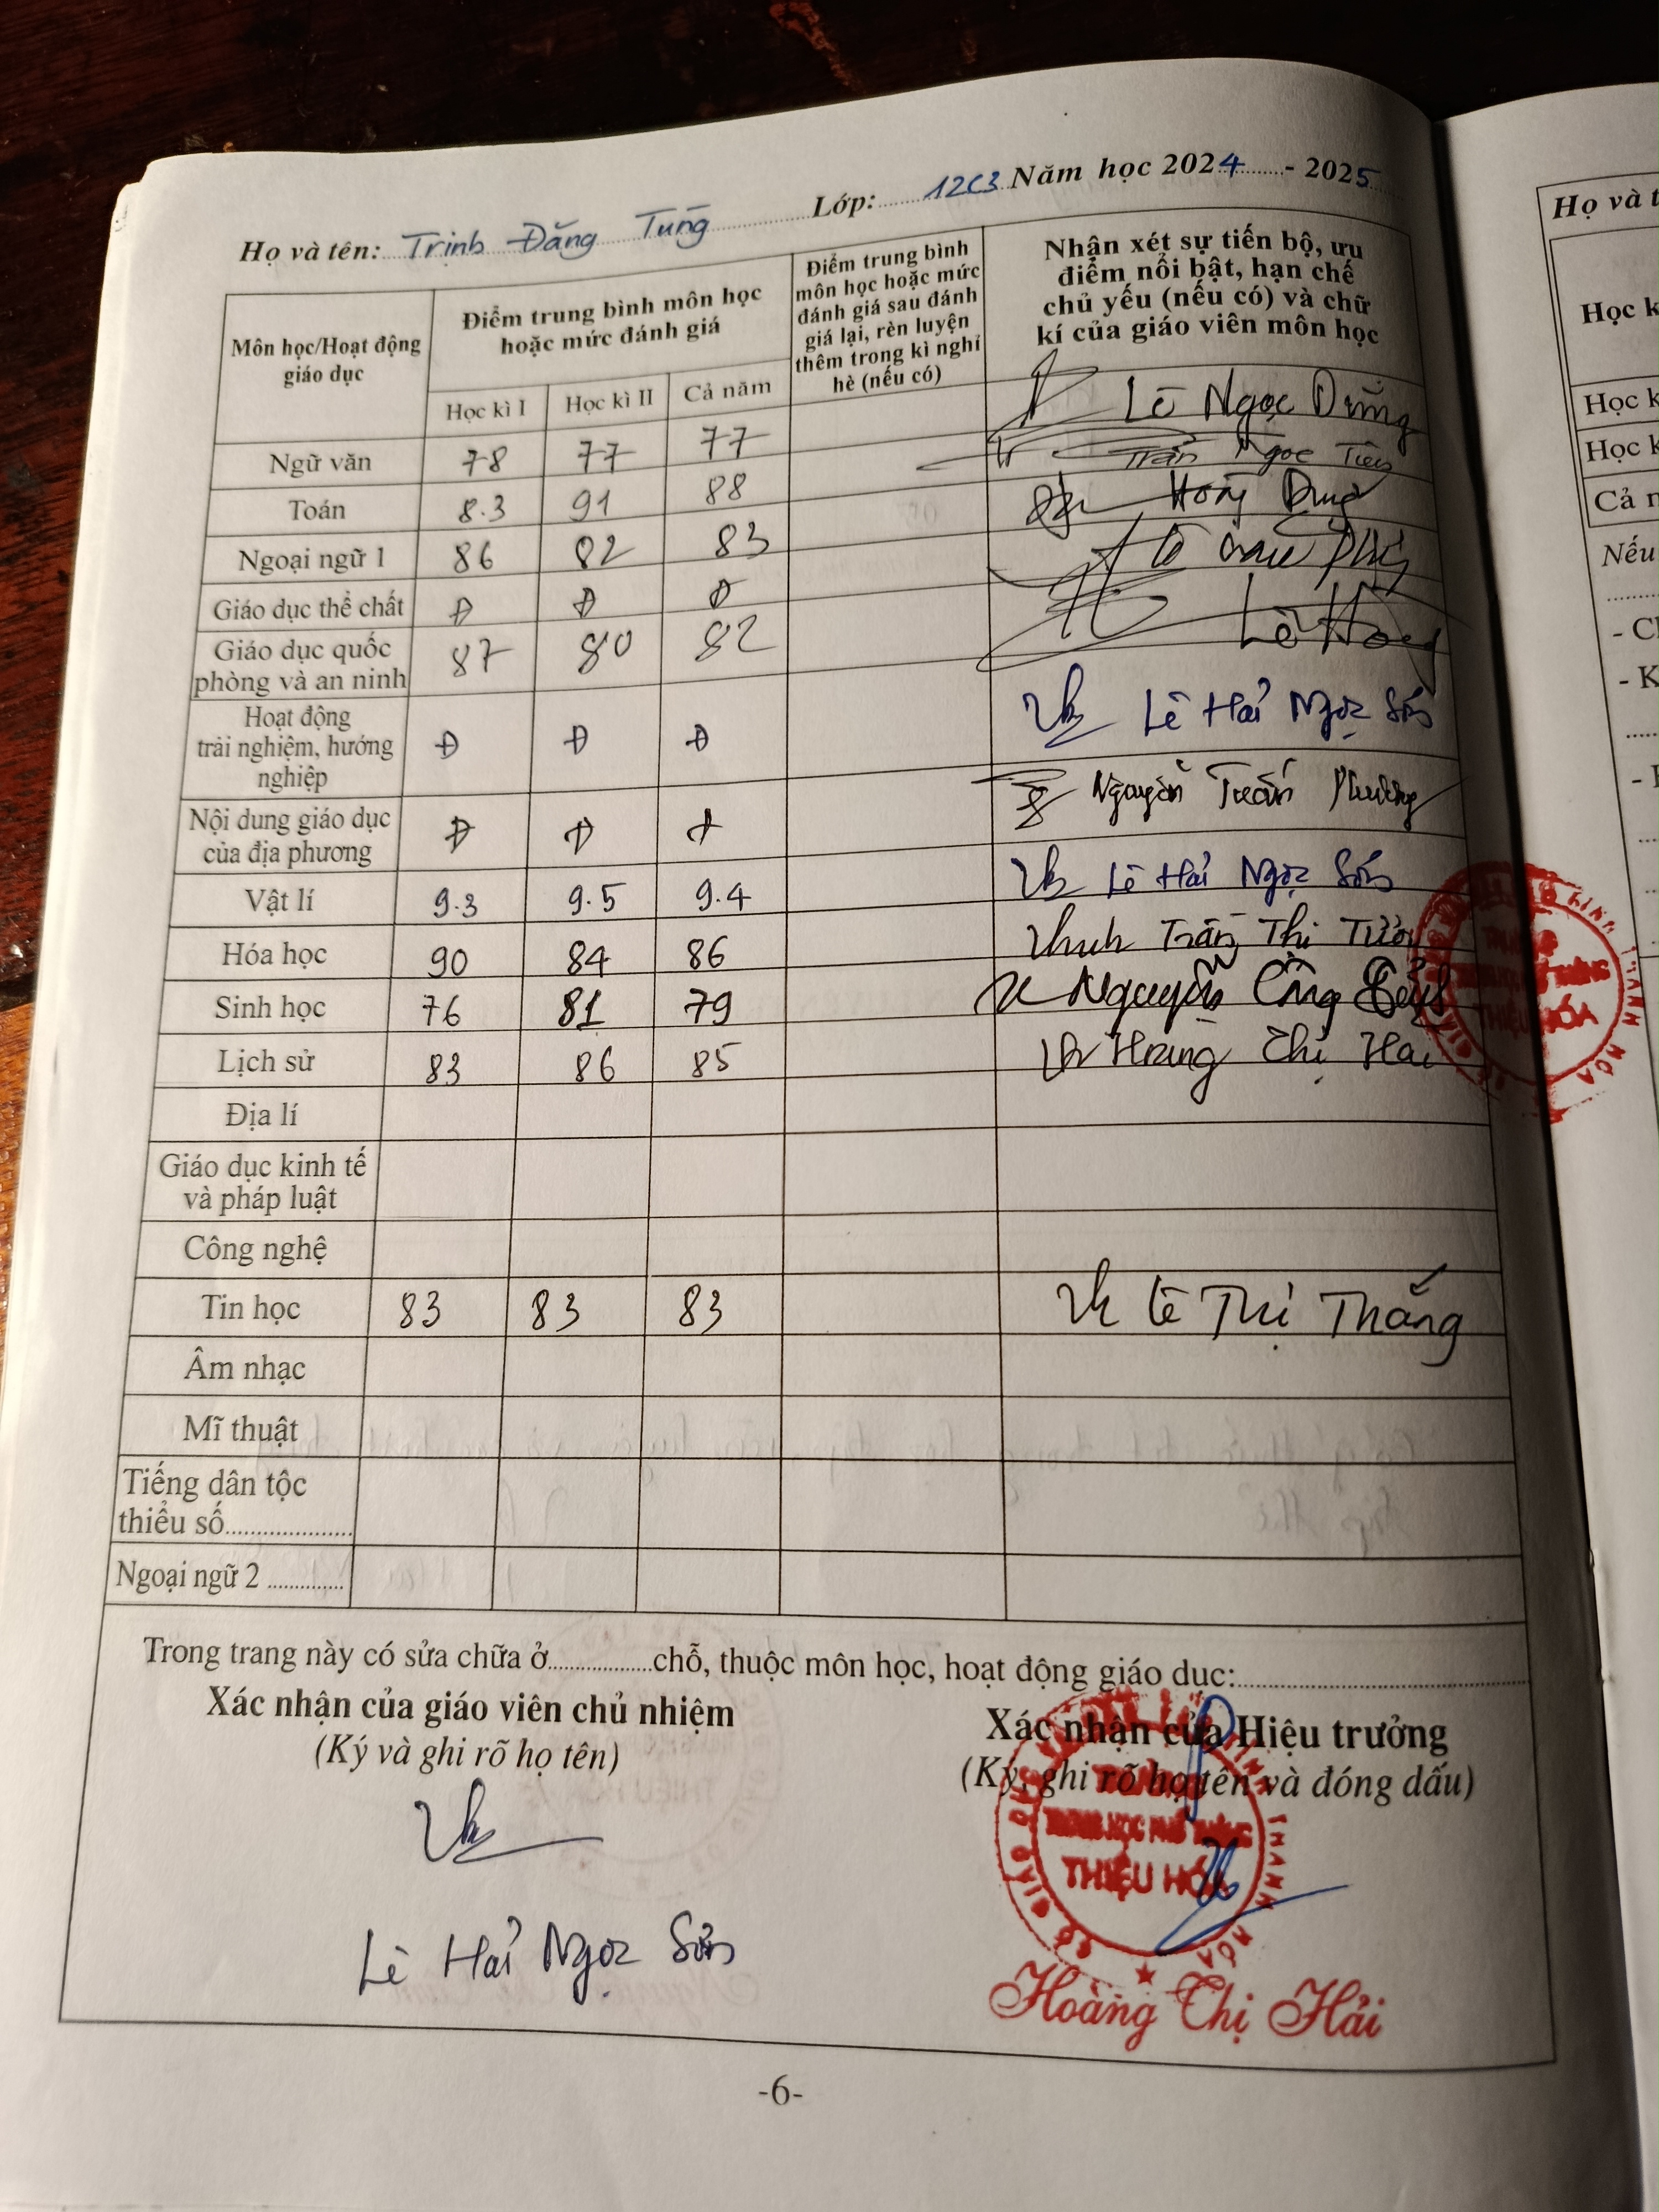 Họ và tên: Trịnh Đăng Tùng Lớp: 12C3 Năm học 2024 - 2025
Môn học/Hoạt động giáo dục
Điểm trung bình môn học hoặc mức đánh giá
Học kì I Học kì II Cả năm
Điểm trung bình môn học hoặc mức đánh giá sau đánh giá lại, rèn luyện thêm trong kì nghỉ hè (nếu có)
Nhận xét sự tiến bộ, ưu điểm nổi bật, hạn chế chủ yếu (nếu có) và chữ kí của giáo viên môn học
Ngữ văn 78 77 77 Lê Ngọc Dũng
Toán 8.3 91 88 Trần Ngọc
Ngoại ngữ 1 86 82 83 Dung
Giáo dục thể chất Đ Đ Đ
Giáo dục quốc phòng và an ninh 87 80 82 Lê
Hoạt động trải nghiệm, hướng nghiệp Đ Đ Đ Lê Hải Ngọc Sơn
Nội dung giáo dục của địa phương Đ Đ Đ Nguyễn
Vật lí 9.3 9.5 9.4 Lê Hải Ngọc Sơn
Hóa học 90 84 86 Trần Thị
Sinh học 76 81 79 Nguyễn Công
Lịch sử 83 86 85 Hoàng Thị
Địa lí
Giáo dục kinh tế và pháp luật
Công nghệ
Tin học 83 83 83 Lê Thị Thắng
Âm nhạc
Mĩ thuật
Tiếng dân tộc thiểu số
Ngoại ngữ 2
Trong trang này có sửa chữa ở chỗ, thuộc môn học, hoạt động giáo dục:
Xác nhận của giáo viên chủ nhiệm
(Ký và ghi rõ họ tên)
Lê Hải Ngọc Sơn
Xác nhận của Hiệu trưởng
(Ký, ghi rõ họ tên và đóng dấu)
TRƯỜNG
TRUNG HỌC PHỔ THÔNG
THIỆU HÓA
Hoàng Thị Hải
-6-
Họ và t
Học k
Học k
Học k
Cả n
Nếu